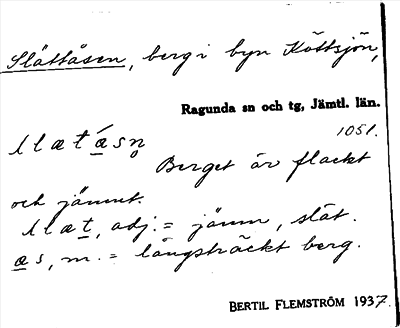 Slättåsen, berg i byn Köttsjön,
Ragunda sn och tg, Jämtl. län.
1051.
Berget är flackt
och jämnt.
adj. = jämn, slät.
m. = långsträckt berg.
BERTIL FLEMSTRÖM 1937.